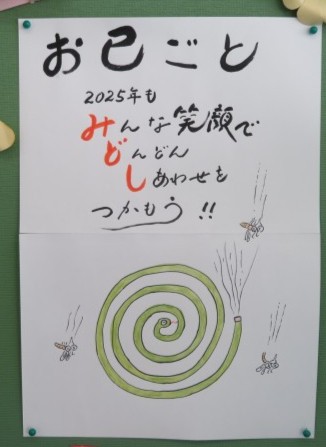 お巳ごと
2025年も
みんな笑顔で
どんどん
しあわせを
つかもう!!